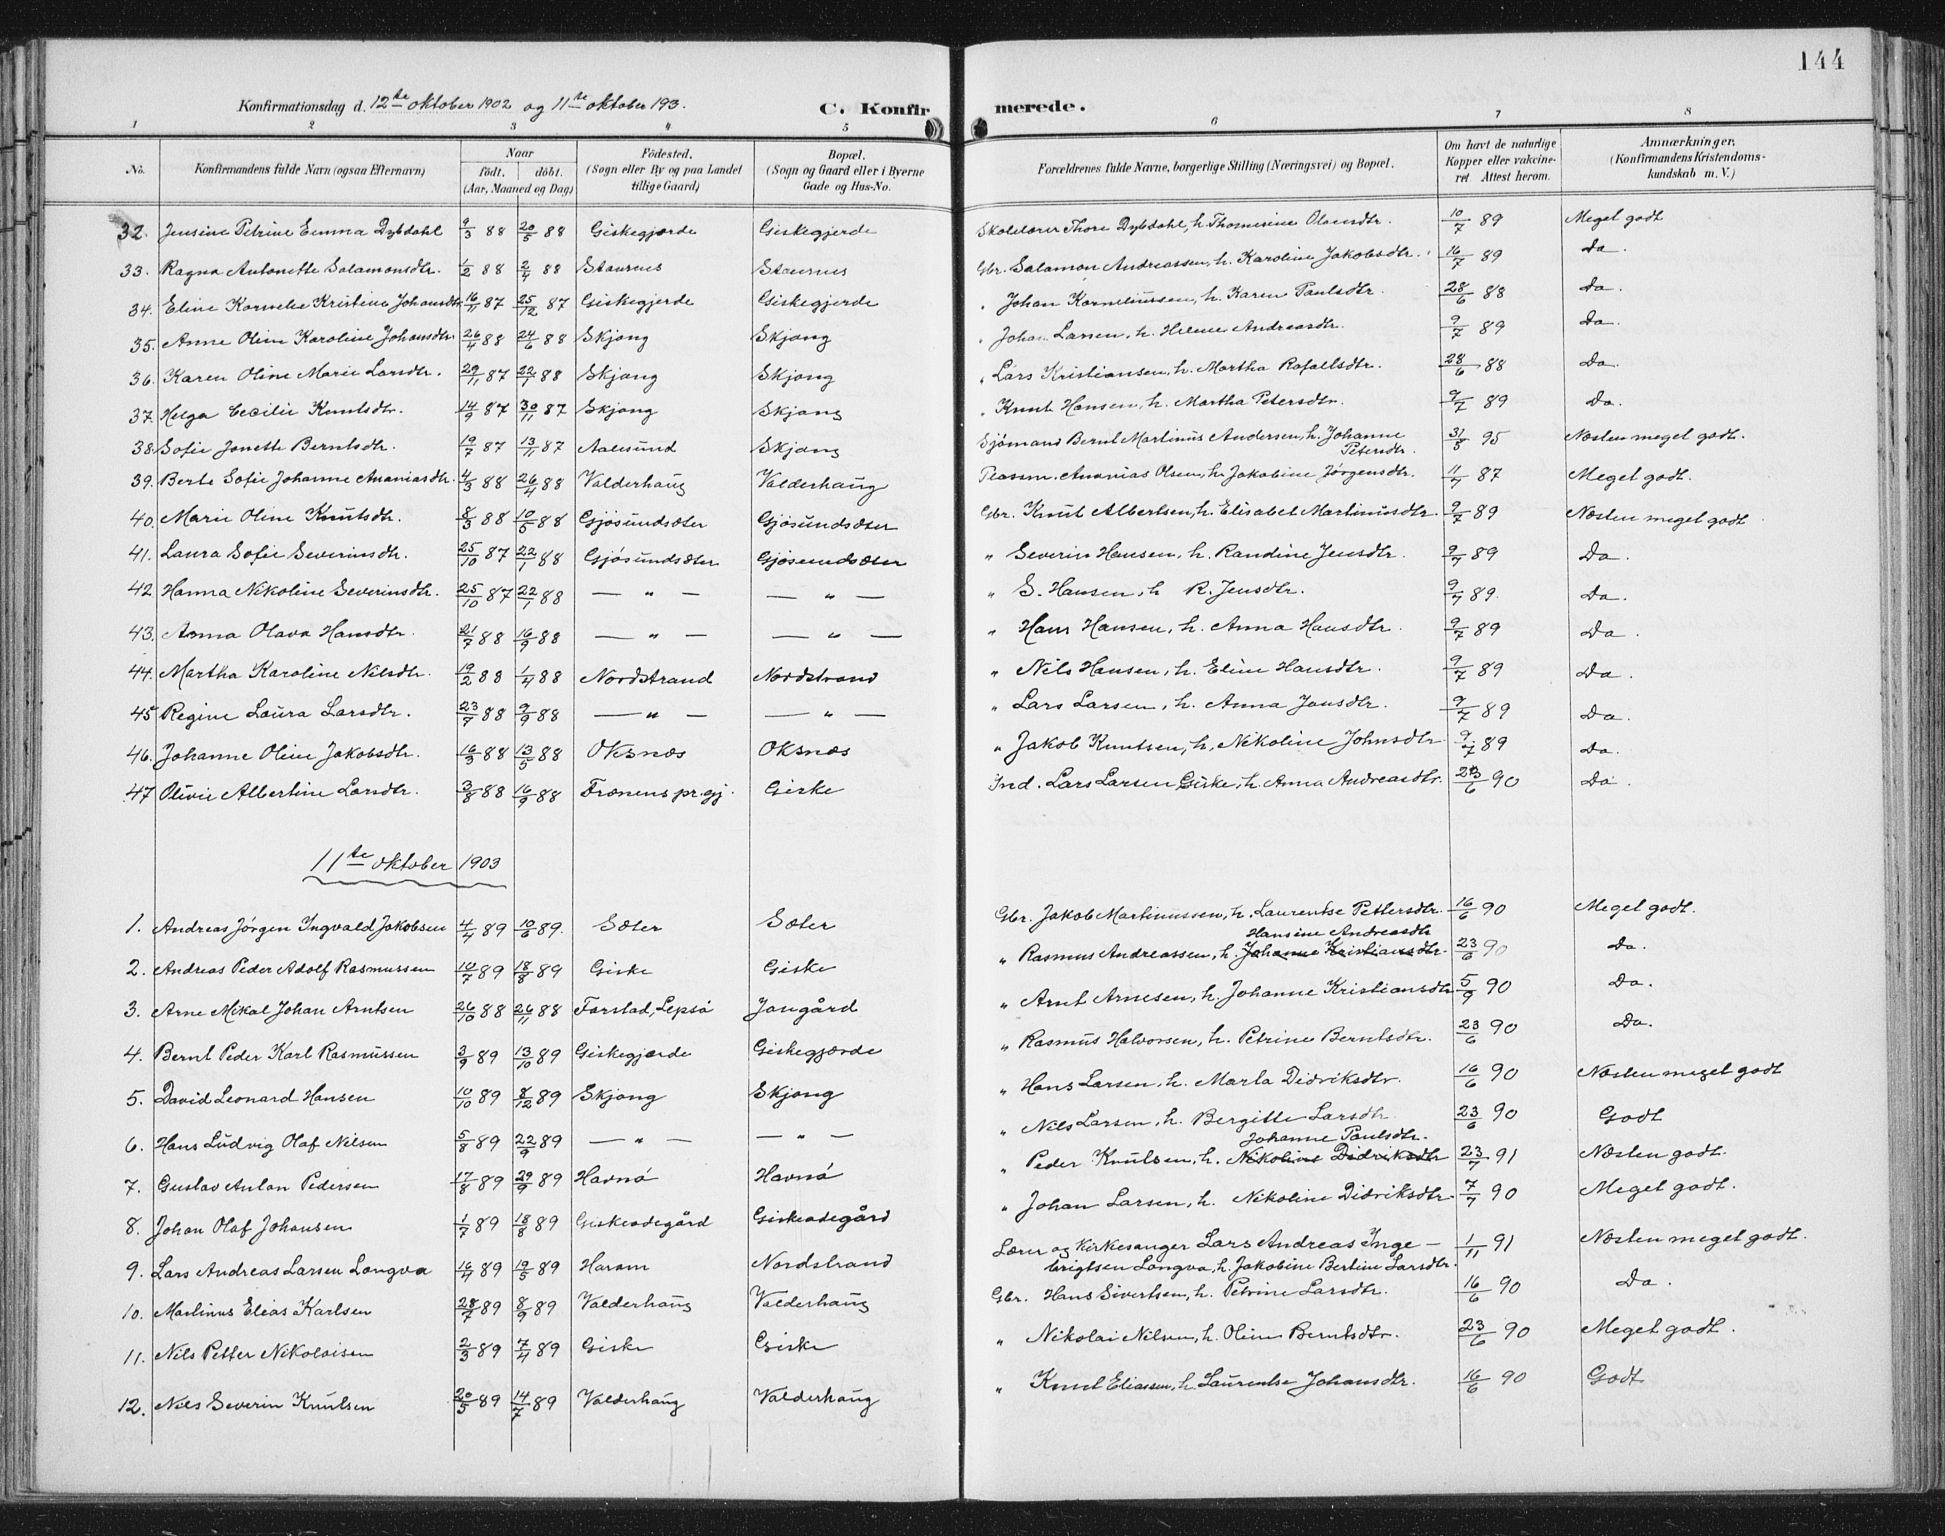 144
Konfirmationsdag d. 12te oktober 1902 og 11te oktober 193. C. Konfirmerede.
1 2 3 4 5 6 7 8
No. Konfirmandens fulde Navn (ogsaa Efternavn) Naar født. døbt. (Aar, Maaned og Dag) Fødested. (Sogn eller By og paa Landet tillige Gaard) Bopæl. (Sogn og Gaard eller i Byerne Gade og Hus-No. Forældrenes fulde Navne, borgerlige Stilling (Næringsvei) og Bopæl. Om havt de naturlige Kopper eller vakcineret Attest herom. Anmærkninger, (Konfirmandens Kristendomskundskab m. V.)
32. Jensine Petrine Emma Dybdahl 9/3 88 20/5 88 Giskegjærde Giskegjerde Skolelærer Thore Dybdahl, h. Thomesine Olausdtr. 10/7 89 Meget godt
33. Ragna Antonette Salamonsdtr. 1/2 88 2/4 88 Staurnes Staurnes Gbr. Salamon Andreassen, h. Karoline Jakobsdtr. 16/7 89 Da.
34. Eline Kornelie Kristine Johansdtr 16/11 87 25/12 87 Giskegjerde Giskegjerde " Johan Korneliussen, h. Karen Paulsdtr. 28/6 88 Da.
35. Anne Oline Karoline Johansdtr 26/4 88 24/6 88 Skjong Skjong " Johan Larsen, h. Helene Andreasdtr. 9/7 89 Da.
36. Karen Oline Marie Larsdtr. 29/11 87 22/1 88 Skjong Skjong " Lars Kristiansen, h. Martha Rafaelsdtr. 28/6 88 Da.
37. Helga Cecilie Knutsdtr. 14/9 87 30/11 87 Skjong Skjong " Knut Hansen, h. Martha Petersdtr. 9/7 89 Da.
38. Sofie Jonette Berntsdtr. 19/7 87 13/11 87 Aalesund Skjong Sjømand Bernt Martinus Andersen, h. Johanne Petersdtr. 31/5 95 Næsten meget godt.
39. Berte Sofie Johanne Ananiasdtr. 4/3 88 26/4 88 Valderhaug Valderhaug Plasm. Ananias Olsen, h. Jakobine Jørgensdtr. 11/7 87 Meget godt.
40. Marie Oline Knutsdtr. 8/3 88 10/5 88 Gjøsundsæter Gjøsundsæter Gbr. Knut Albertsen, h. Elisabet Martinusdtr. 9/7 89 Næsten meget godt
41. Laura Sofie Severinsdtr. 25/10 87 22/1 88 Gjøsundsæter Gjøsundsæter " Severin Hansen, h. Randine Jensdtr. 9/7 89 Da.
42. Hanna Nikoline Severinsdtr. 25/10 87 22/1 88 — " — — " — " S. Hansen, h. R. Jensdtr. 9/7 89. Da.
43. Anna Olava Hansdtr. 21/7 88 16/9 88 — " — — " — " Hans Hansen, h. Anna Hansdtr. 9/7 89 Da.
44. Martha Karoline Nilsdtr. 19/2 88 1/4 88 Nordstrand Nordstrand " Nils Hansen, h. Eline Hansdtr. 9/7 89 Da.
45 Regine Laura Larsdtr. 23/7 88 9/9 88 — " — — " — " Lars Larsen, h. Anna Jonsdtr. 9/7 89 Da.
46. Johanne Oline Jakobsdtr. 16/3 88 13/5 88 Oksnæs Oksnæs " Jakob Knutsen, h. Nikoline Johnsdtr. 9/7 89 Da.
47 Olivie Albertine Larsdtr. 3/8 88 16/9 88 Frænens pr.gj. Giske Ind. Lars Larsen Giske, h. Anna Andreasdtr. 23/6 90 Da.
11te oktober 1903
1. Andreas Jørgen Ingvald Jakobsen 4/4 89 10/6 89. Sæter Sæter Gbr. Jakob Martinussen, h. Laurentse Pettersdtr. 16/6 90 Meget godt.
2. Andreas Peder Adolf Rasmussen 10/7 89 18/8 89 Giske Giske " Rasmus Andreassen, h. Johanne Kristiansdtr. Hansine Andreasdtr 23/6 90 Da.
3. Arne Mikal Johan Arntsen 26/10 88 26/11 88 Farstad, Lepsø Jangård " Arnt Arnesen, h. Johanne Kristiansdtr 5/9 90 Da.
4. Bernt Peder Karl Rasmussen 3/9 89 13/10 89 Giskegjærde Giskegjærde " Rasmus Halvorsen, h. Petrine Berntsdtr. 23/6 90 Da.
5. David Leonard Hansen 10/10 89 8/12 89 Skjong Skjong " Hans Larsen, h. Marta Didriksdtr. 16/6 90 Næsten meget godt
6. Hans Ludvig Olaf Nilsen 5/8 89 22/9 89 — " — — " — " Nils Larsen, h. Bergitte Larsdtr. 23/6 90 Godt
7. Gustav Anton Pedersen 17/8 89 29/9 89 Havnø Havnø " Peder Knutsen, h. Nikoline Didriksdtr Johanne Paulsdtr. 23/7 91 Næsten godt.
8. Johan Olaf Johansen 1/7 89 18/8 89 Giskeødegård Giskeødegård " Johan Larsen, h. Nikoline Didriksdtr. 7/7 90 Meget godt.
9. Lars Andreas Larsen Longva 16/4 89 19/5 89 Haram Nordstrand Lærer og kirkesanger Lars Andreas Ingebrigtsen Longva, h. Jakobine Bertine Larsdtr. 1/11 91 Næsten meget godt.
10. Martinus Elias Karlsen 28/7 89 8/9 89 Valderhaug Valderhaug Gbr. Hans Sivertsen, h. Petrine Larsdtr. 16/6 90 Da.
11. Nils Petter Nikolaisen 2/3 89 7/4 89 Giske Giske " Nikolai Nilsen, h. Oline Berntsdtr. 23/6 90 Meget godt.
12. Nils Severin Knutsen 20/5 89 14/7 89 Valderhaug Valderhaug " Knut Eliassen, h. Laurentse Johansdtr. 16/6 90 Godt